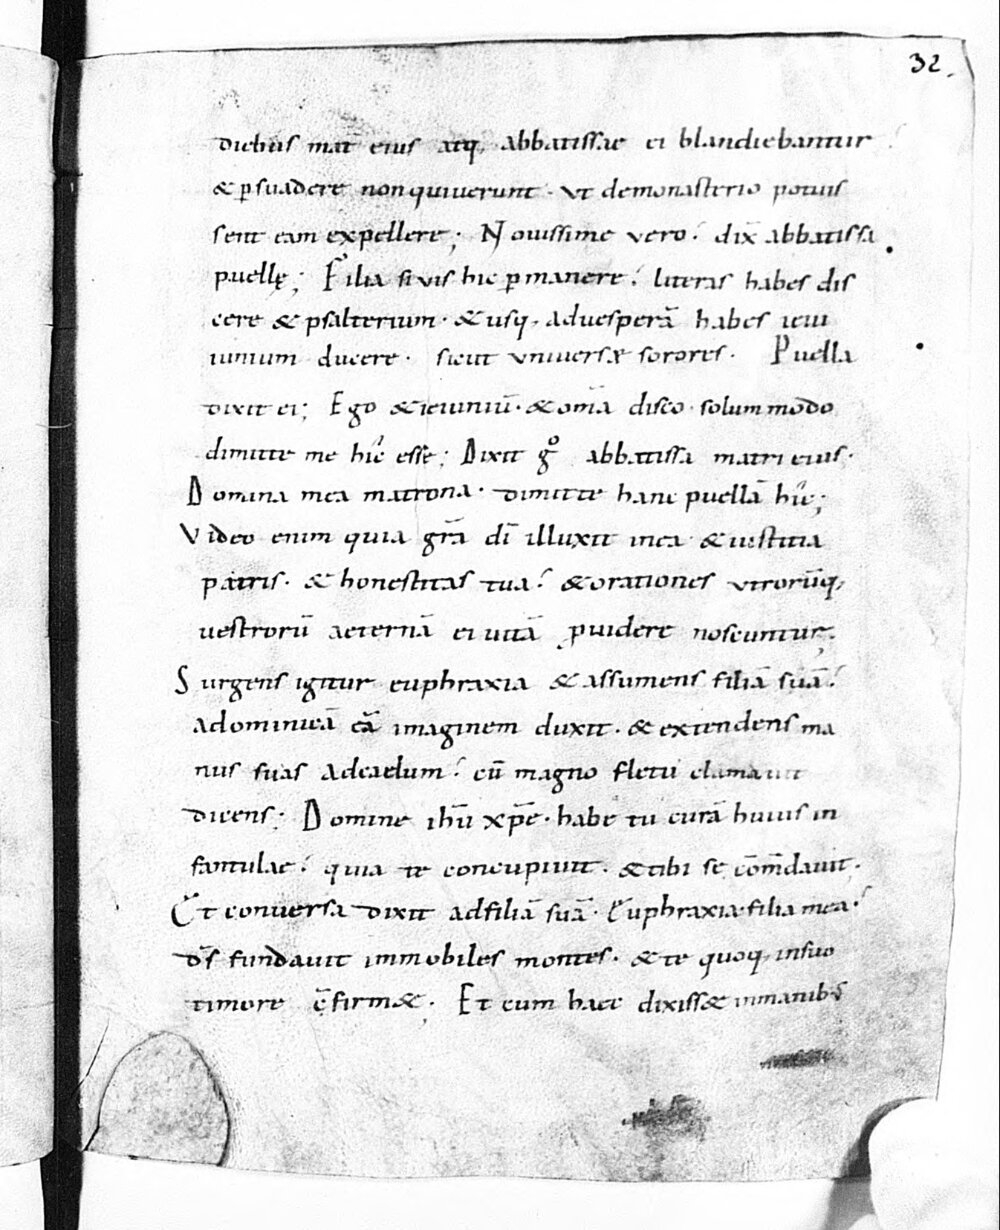 32.
diebus mat̄ eius atq; abbatissae ei blandiebantur
& p̱suadere non quiuerunt · vt demonasterio potuis
sent eam expellere; Nouissime vero: dix̄ abbatissa
puellę; Filia si vis hic p̱manere: literas habes dis
cere & psalterium · & usq; aduesperā habes ieiu
iunium ducere · sicut vniuersæ sorores · Puella
dixit ei; Ego & ieiuniū · & om̄a disco · solummodo
dimitte me hic esse; Dixit gͦ abbatissa matri eius ·
Domina mea matrona · dimitte hanc puellā hic;
Video enim quia gr̄a dī illuxit inea & iustitia
patris · & honestitas tua: & orationes vtrorūq;
uestrorū aeternā ei uitā p̱uidere noscuntur;
Surgens igitur euphraxia & assumens filiā suā:
adominicā eā imaginem duxit · & extendens ma
nus suas adcaelum: cū magno fletu clamauit
dicens; Domine ihū xp̄e · habe tu curā huius in
fantulae: quia te concupiuit · & tibi se cōm̄dauit ·
Et conuersa dixit adfiliā suā · Euphraxia filia mea:
d̄s fundauit immobiles montes · & te quoq; insuo
timore c̄firm& · Et cum haec dixiss& inmanib;